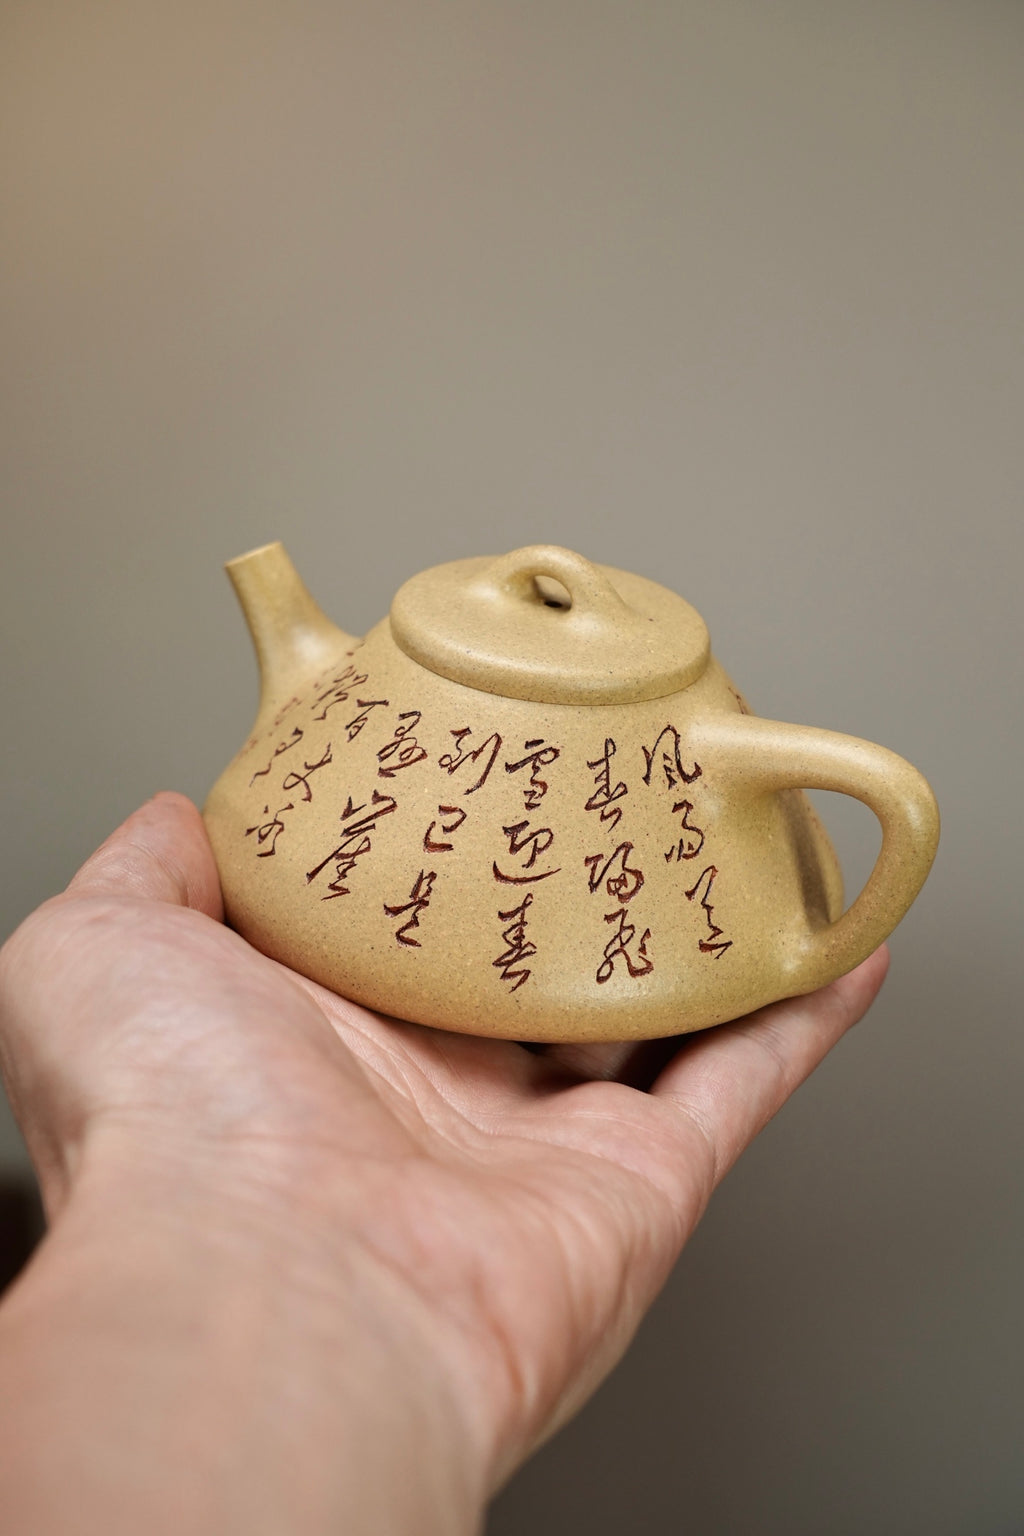 風雨送
春歸飛
雪迎春
到已是
悬崖
百丈冰